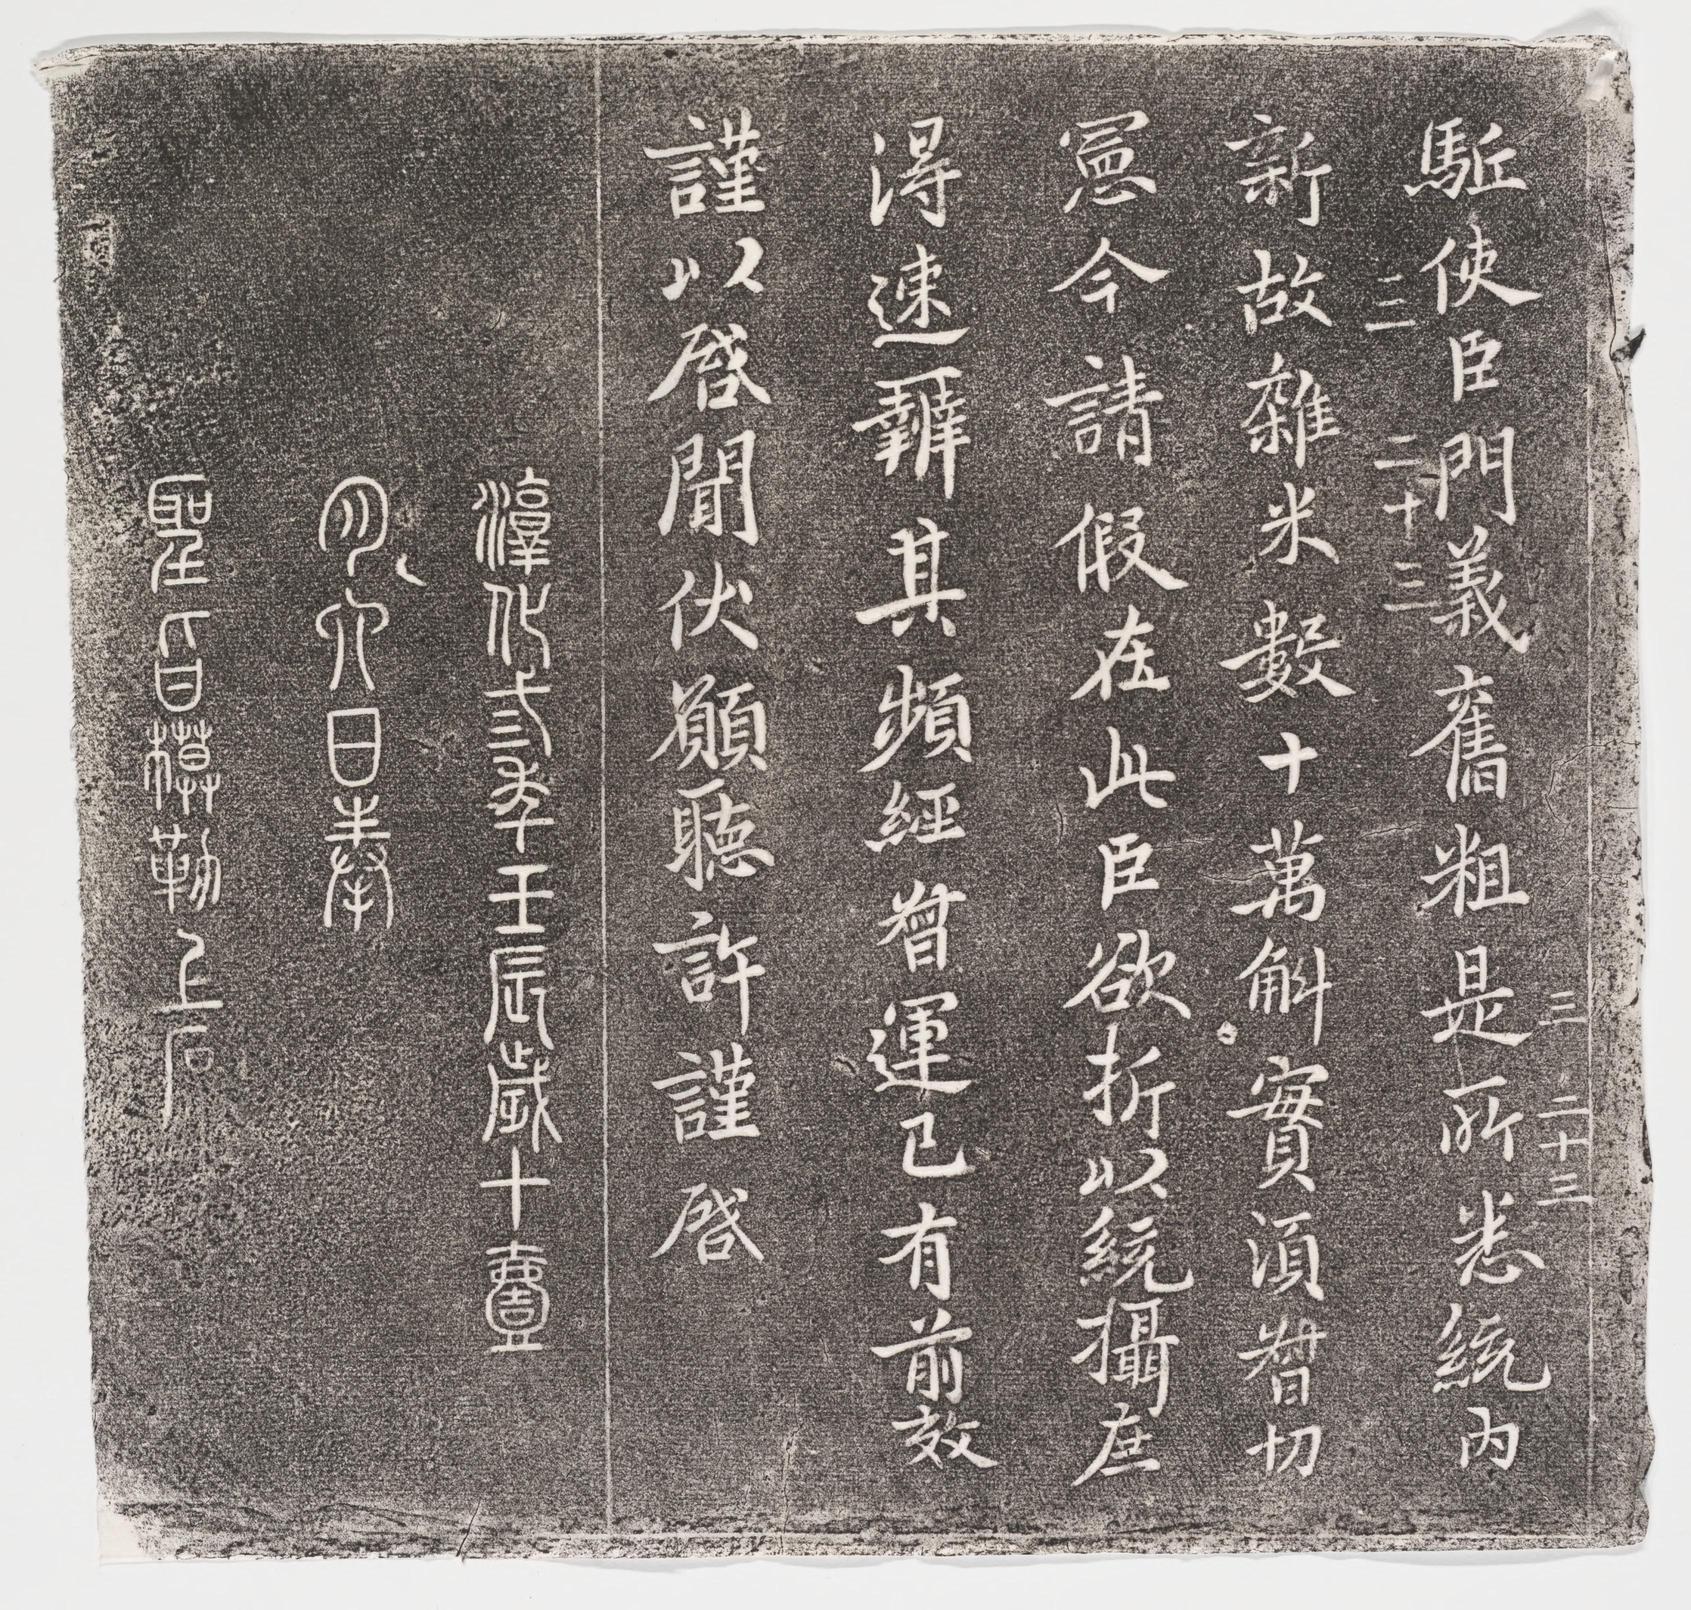 駈使臣門義舊粗是所悉統內
三 二十三
三 二十三
新故雜米數十萬斛實須督切
憲今請假在此臣欲折以統攝庶
得速辦其頻經督運已有前效
謹以啓聞伏願聽許謹啓
淳化三年壬辰歲十壹
月六日奉
聖旨模勒上石